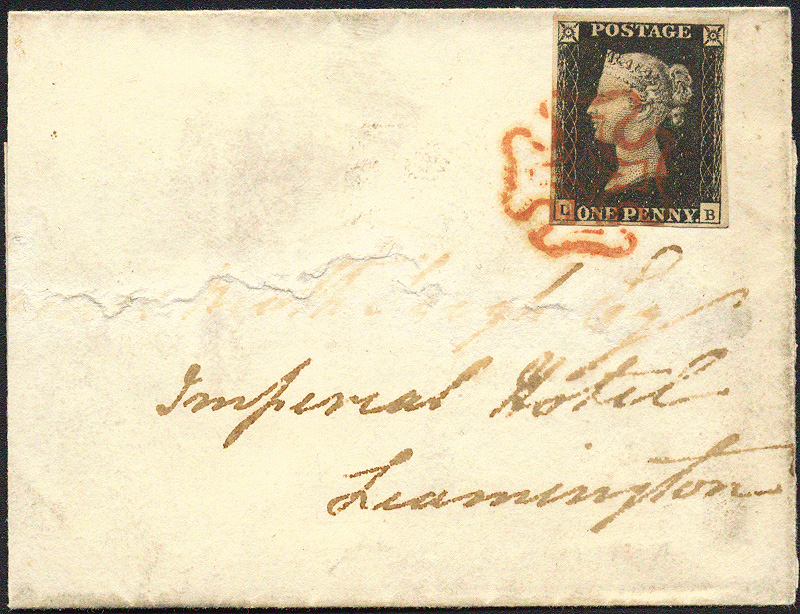 POSTAGE
L ONE PENNY. B
Leigh Esq
Imperial Hotel
Leamington